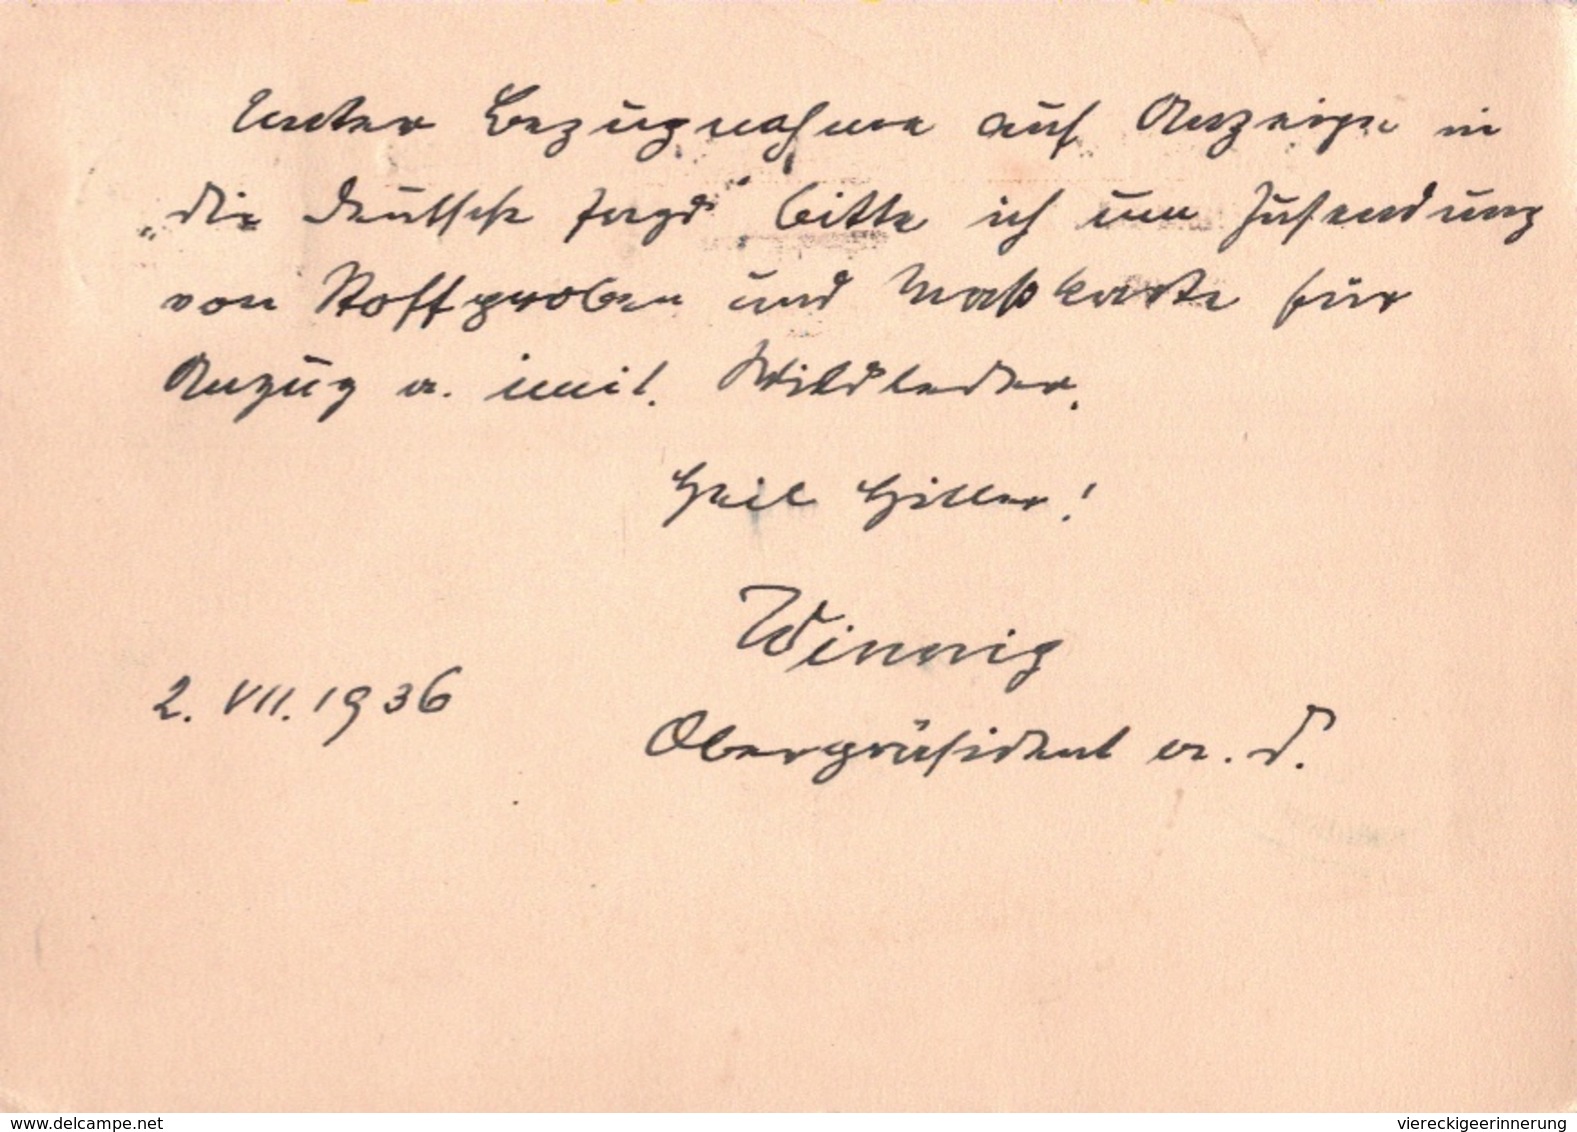 Unter Bezugnahme auf Anzeige in
„die deutsche Jagd" bitte ich um Zusendung
von Stoffproben und Maßkarte für
Anzug a. imit. Wildleder.
Heil Hitler!
Winnig
2. VII. 1936
Oberpräsident a. D.
delcampe.net
viereckigeerinnerung